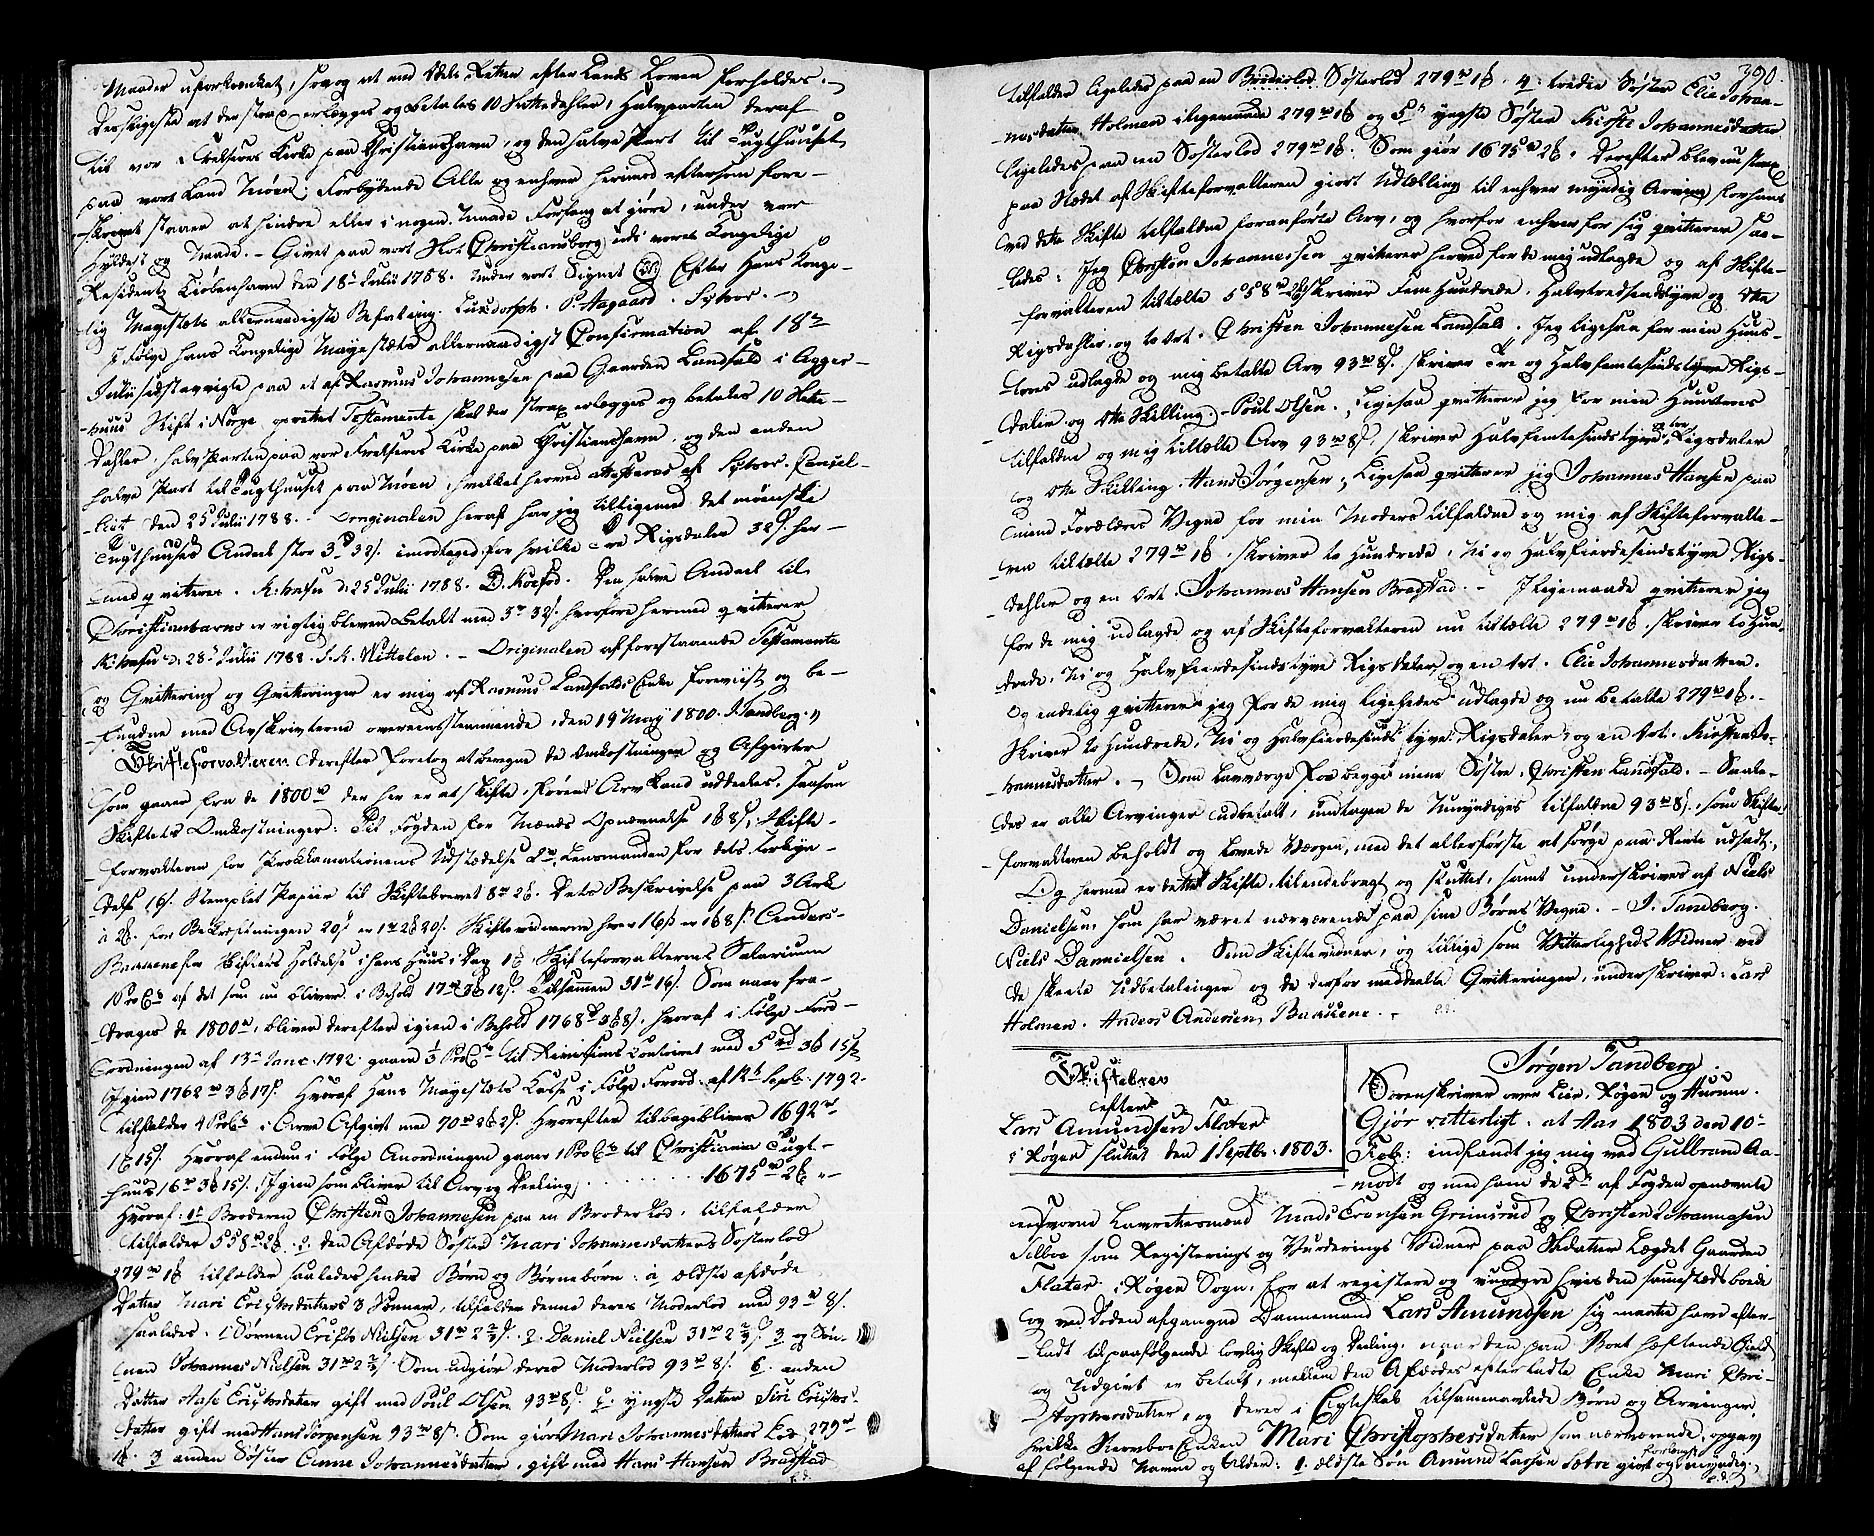 Maader uforkrænket, saa og at med Odels Retten efter Lands Loven forholdes. –
Derhligeste at der strax erlægges og betales 10 Slettedahler, Halvparten deraf
til vor Frelseres Kirke paa Christianshavn, og den halve Part til Tugthuuset
paa vort Land Møen; Forbydende Alle og enhver herimod eftersom fore-
skrevet staaer at hindre eller i nogen Maade Forfang at giøre, under vor
Hyldest og Naade. – Givet paa vort Slot Christiansborg udi vores Kongelige
Residentz Kiøbenhavn den 18 Julii 1788. Under vort Signet Efter Hans Konge-
lig Mayestæts allernaadigste Befaling. Luxdorph. P. Aagaard.
I følge hans Kongelige Mayestæts allernaadigst Confirmation af 18de
Julii sidst avvigte paa et af Rasmus Johannesen paa Gaarden Landfald i Agger-
huus Stift i Norge oprettet Testamente skal der strax erlægges og betales 10 Slette-
Dahler, halvparten paa vor Frelseres Kirke paa Christianshavn, og den anden
halve Part til Tugthuuset paa Møen, hvilket herved attesteres af Cancel-
liet den 25 Julii 1788. – Originalen heraf har jeg tilligemed det møenske
Tugthuuses Andeel stor 3 rd 32 s. imodtaget for hvilke Tre Rigsdaler 32 s. her-
med qviteres. K:havn d. 25 Julii 1788. D. Koefod. Den halve Andeel til
Christianshavns er rigtig bleven betalt med 3 rd 32 s. hvorfore hermed qviterer
K:havn d. 28 Julii 1788. – Originalen af forestaaende Testamente
og Qvittering og Qviteringer er mig af Rasmus Landfalds Enke foreviist og be-
funden med Avskrivterne overeensstemmende, den 19 May 1800. J. Tandberg.
Skifteforvalteren derefter foretog at beregne de Omkostninger og Afgivter
som gaaer fra de 1800 rd der her er at skifte, førend Arv kand uddeles. Saasom
Skiftets Omkostninger: Til Fogden for Mænds Opnævnelse 1 ort 8 s., Skifte-
forvalteren for Proklamationens Udstædelse 2 rd, Lensmanden for dets Forkyn-
delse 16 s. Stemplet Papiir til Skiftebrevet 8 rd 2 ort. Dets Beskrivelse paa 3 Ark
à 2 ort. for Bekræftningen 20 s. er 1 rd 2 ort 20 s. Skiftevidnerne hver 16 s. er 1 ort 8 s. Anders
Baauene for Skiftets Holdelse i hans Huus i Dag 1 rd Skifteforvalterens Salarium
1 ProCto af det som nu bliver i Behold 17 rd 3 ort 12 s. Tilsammen 31 rd 16 s. Som naar fra-
drages de 1800 rd, bliver derefter igien i Behold 1768 rd 3 ort 8 s. hvoraf i Følge Fror-
ordningen af 13de Janr. 1792 gaaer 1/3 ProCto til Revisions Contoiret med 5 rd 3 ort 15 s.
Igien 1762 rd 3 ort 17 s. Hvoraf Hans Mayestæts Casse i Følge Forord: af 12te Septb: 1792
tilfalder 4 ProCto i Arve Afgivt med 70 rd 2 ort 2 s. Hvorefter tilbagebliver 1692 rd
1 ort 15 s. Hvoraf endnu i Følge Anordningen gaaer 1 ProCto til Christiania Tugt-
huus 16 rd 3 ort 15 s. Igien som bliver til Arv og Deeling . . . . . . 1675 rd 2 ort "
Hvoraf: 1te Broderen Christen Johannesen paa en Broder Lod, tilfalder
tilfalder 558 rd 2 ort. 2. den Afdøde Søster Mari Johannesdatters Søsterlod
279 rd 1 ort tilfalder saaledes hendes Børn og Børnebørn: a, ældste afdøde
Datter Mari Erichsdatters 3 Sønner, tilfalder denne deres Moderlod med 93 rd 8 s.
saaledes. 1 Sønnen Erich Nielsen 31 rd 2 2/3 s. 2. Daniel Nielsen 31 rd 2 2/3 s. 3 og Søn-
nen Johannes Nielsen 31 rd 2 2/3 s. Som udgiør deres Moderlod 93 rd 8 s. b. anden
Datter Aase Erichsdatter gift med Poul Olsen 93 rd 8 s. c. yngste Datter Siri Erichs-
datter gift med Hans Jørgensen 93 rd 8 s. Som giør Mari Johannesdatters Lod 279 rd
1 ort. 3 anden Søster Anne Johannesdatter, gift med Hans Hansen Bradstad
390.
tilfalder ligeledes paa en Broderlod Søsterlod 279 rd 1 ort. 4. tredie Søster Elie Johan-
nesdatter Holmen iligemaade 279 rd 1 ort og 5te yngste Søster Kirsti Johannesdatter
ligeledes paa en Søsterlod 279 rd 1 ort. Som giør 1675 rd 2 ort. Derefter blev nu strax
paa Stædet af Skifteforvalteren giort Udtælling til enhver myndig Arving for hans
ved dette Skifte tilfaldne foranførte Arv, og hvorfor enhver for sig qvitterer saa-
ledes: Jeg Christen Johannessen qvitterer herved for de mig udlagde og af Skifte-
forvalteren tiltælte 558 rd 2 ort skriver Fem Hundrede, Halvtredsindstyve og Otte
Rigsdahler, og to Ort. Christen Johannesen Landfald. Jeg ligesaa for min Huus-
troes udlagde og mig betalte Arv 93 rd 8 s. skriver Tre og Halvfemtesindstyve Rigs-
daler og Otte Skilling. – Poul Olsen. Ligesaa qvitterer jeg for min Huustroes
tilfaldne og mig tiltælte Arv 93 rd 8 s. skriver Halvfemtesindstyve og tre Rigsdaler
og Otte Skilling. Hans Jørgensen. Ligesaa qvitterer jeg Johannes Hansen paa
mine Forældres Vegne for min Moders tilfaldne og mig af Skifteforvalte-
ren tiltælte 279 rd 1 ort skriver to Hundrede, Ni og Halvfierdesindstyve Rigs-
dahler og en Ort. Johannes Hansen Bradstad. – Iligemaade qvitterer jeg
for de mig udlagde og af Skifteforvalteren nu tiltælte 279 rd 1 ort skriver to Hun-
drede, Ni og Halvfierdesindstyve Rigsdaler og en Ort. Elie Johannesdatter.
Og endelig qvitterer jeg for de mig ligeledes udlagde og nu betalte 279 rd 1 ort. –
Skriver to Hundrede, Ni og Halvfierdesindstyve Rigsdaler og en Ort. Kirsten Jo-
hannesdatter. – Som Lauværge for begge mine Søstre, Christen Landfald. – Saale-
des er alle Arvinger udbetalt, undtagen de Umyndiges tilfaldne 93 rd 8 s., som Skifte-
forvalteren beholdt og lovede Værgen, med det allerførste at sørge paa Rente udsadt.
Og hermed er dette Skifte tilendebragt og sluttet, samt underskrives af Niels
Danielsen, som har været nærværende paa sine Børns Vegne. – J. Tandberg.
Niels Dannielsen. Som Skiftevidner, og tillige som Vitterligheds Vidner ved
de skeete Udbetalinger og de derfor meddeelte Qvitteringer, underskriver: Lars
Holmen. Anders Andersen Baauene. –
Skiftebrev
efter
Lars Amundsen Flater
i Røgen sluttet den 1 Septbr. 1803.
Jørgen Tandberg
Sorenskriver over Lier, Røgen og Hurum.
Gjør vitterligt: at Aar 1803 den 10
Feb: indfandt jeg mig med Gulbrand Aa-
modt og med ham de 2de af Fogden opnævnte
eedsvorne Laurettesmænd Mads Cronsen Grimsrud og Christen Johannesen
Selboe som Registerings og Vurderings Vidner paa Skatter Lægdet Gaarden
Flater i Røgen Sogn, for at registere og vurdere hvis den sammestæds boende
og ved Døden afgangne Dannemand Lars Amundsen sig maatte have efter-
ladt til paafølgende lovlig Skifte og Deeling, naar den paa Boet heftende Gield
og Udgivt er betalt, mellem den Afdødes efterladte Enke Mari Chri-
stophersdatter, og deres i Ægteskab tilsammenavlede Børn og Arvinger,
hvilke Sterboe Enken Mari Christophersdatter som nærværende, opgav
af følgende Navne og Alder: 1. ældste Søn Amund Larsen Sætre giort og myndig,